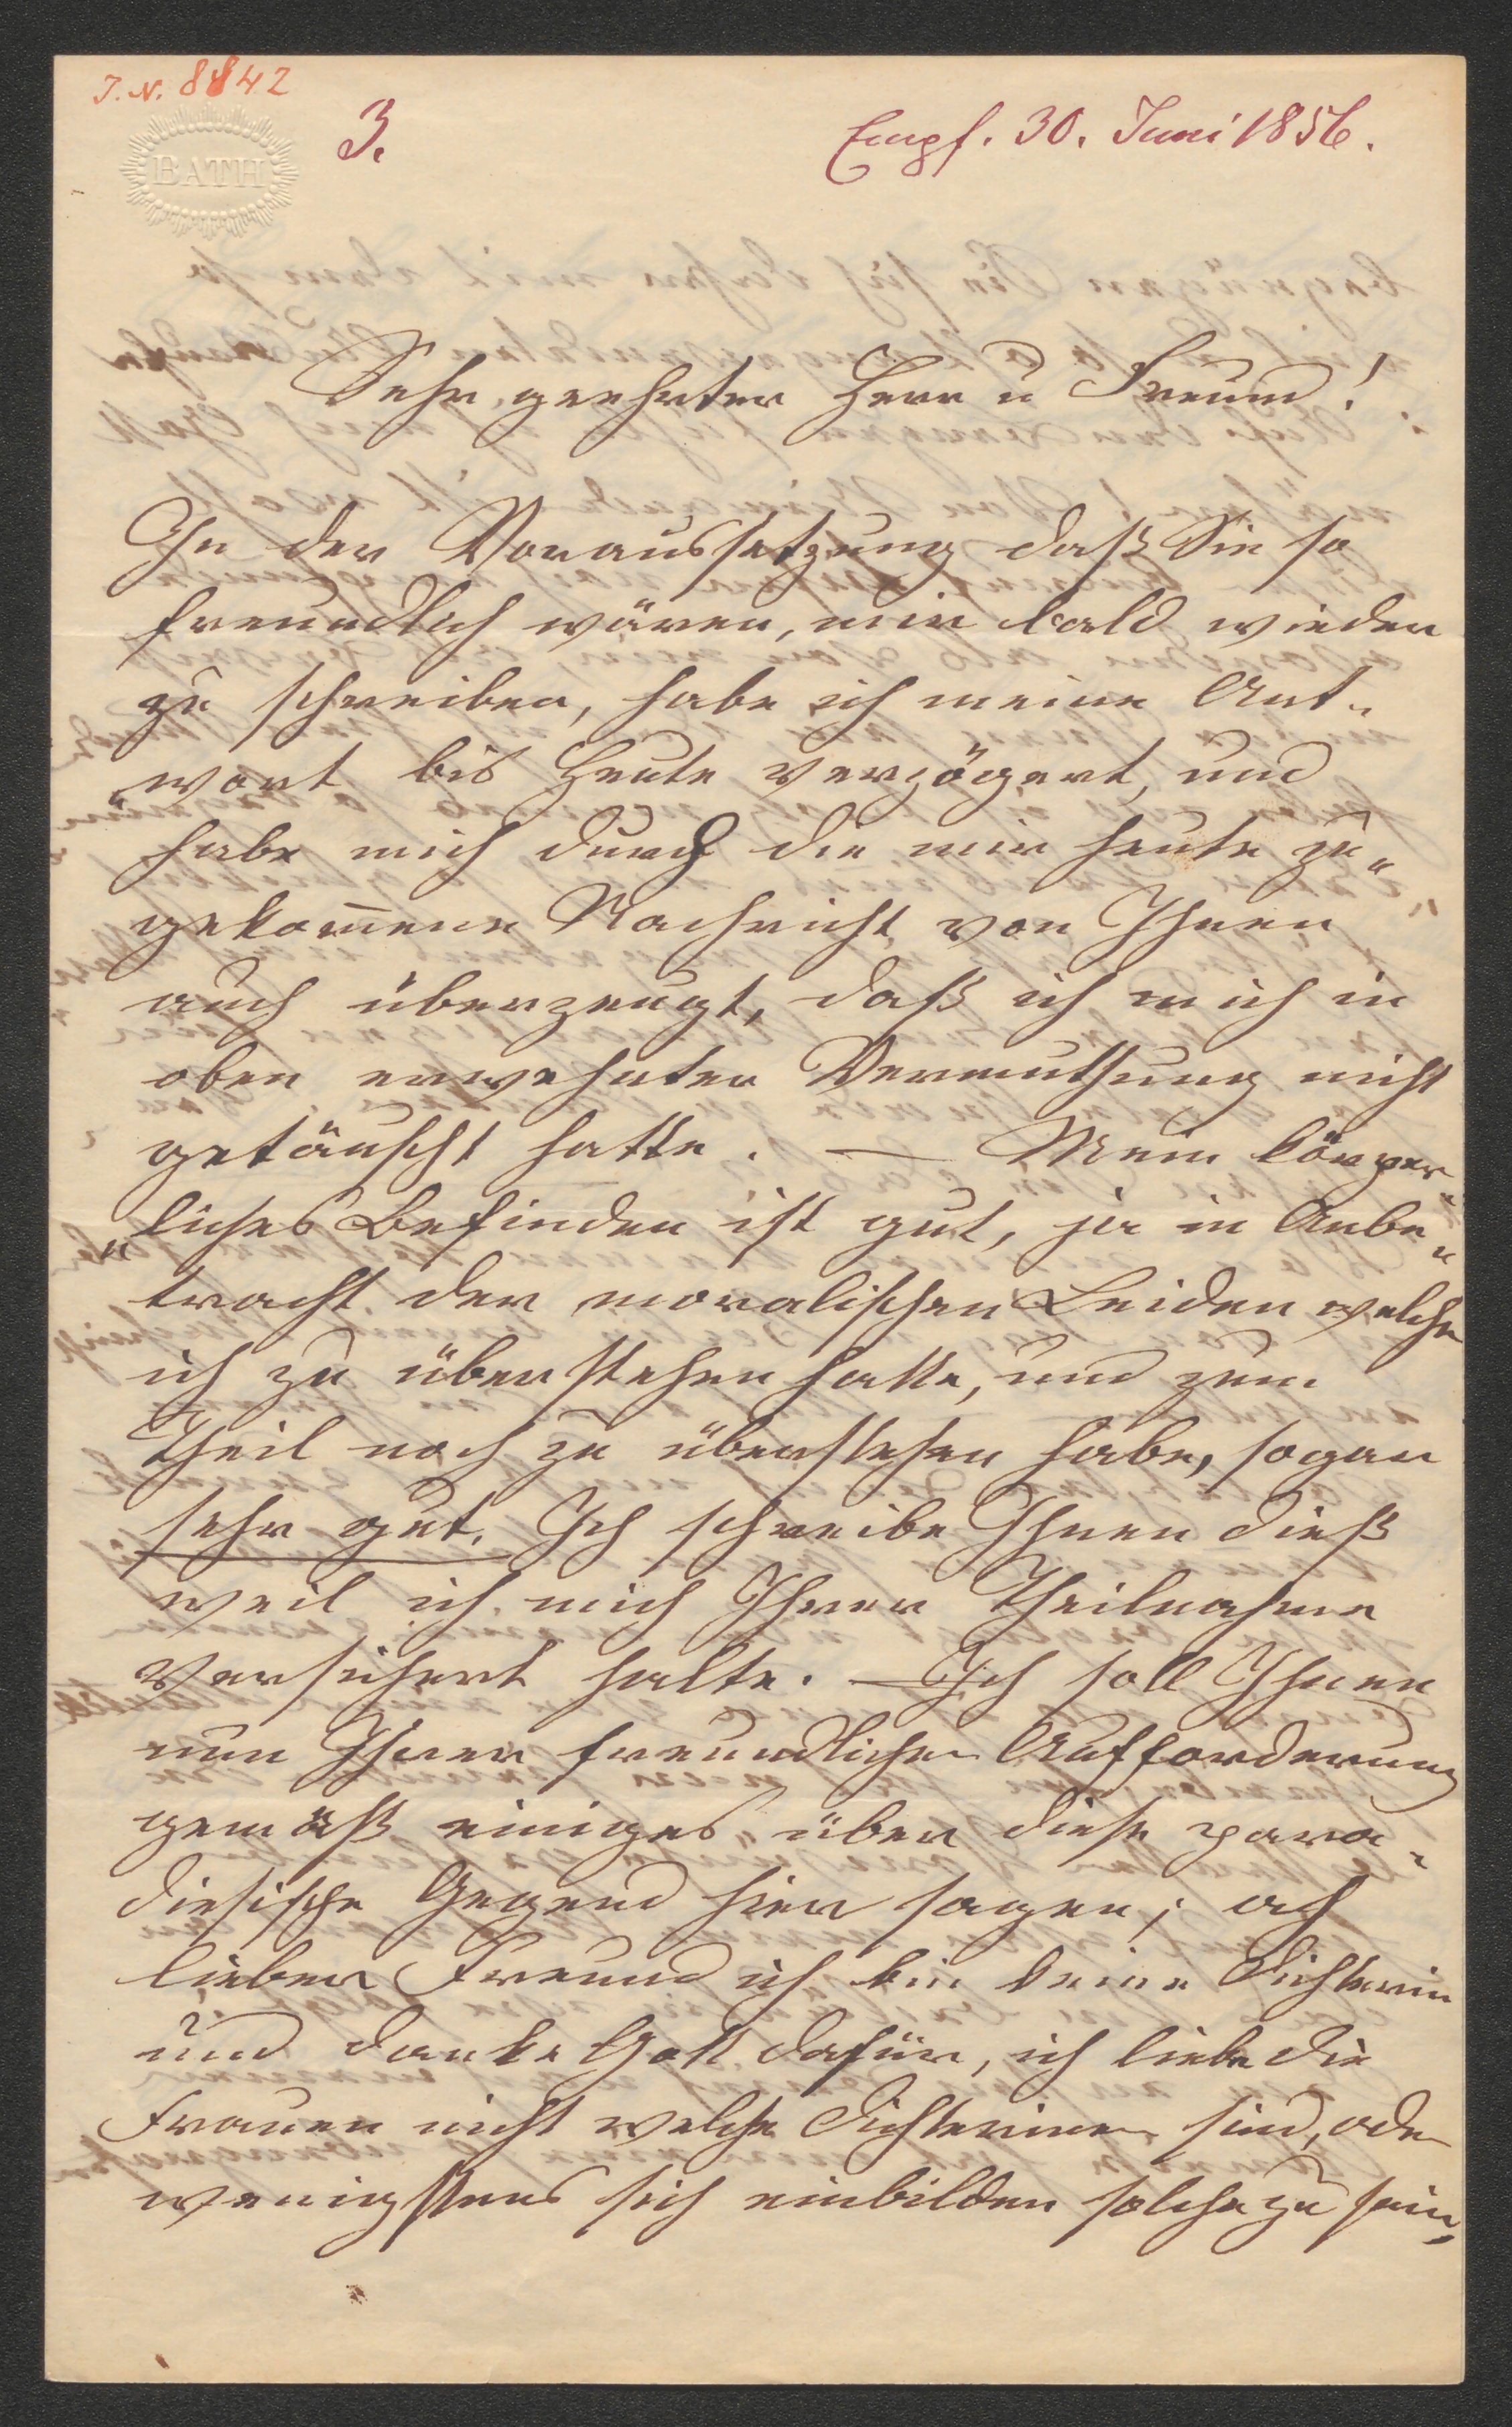 J. N. 8842
BATH
3.
Empf. 30. Juni 1856.
Sehr geehrter Herr u Freund!
In der Voraussetzung daß Sie so
freundlich wären, mir bald wieder
zu schreiben, habe ich meine Ant„
wort bis heute verzögert, und
habe mich durch die mir heute zu„
gekom̄ene Nachricht von Ihnen
auch überzeugt, daß ich mich in
oben erwehnter Vermuthung nicht
getäuscht hatte. — Mein körper„
„liches Befinden ist gut, ja in Anbe„
tracht der moralischen Leiden welche
ich zu überstehen hatte, und zum
Theil noch zu überstehen habe, sogar
sehr gut. Ich schreibe Ihnen dieß
weil ich mich Ihrer Theilnahme
versichert halte. — Ich soll Ihnen
nun Ihrer freundlichen Aufforderung
gemäß einiges über diese para„
diesische Gegend hier sagen; ach
lieber Freund ich bin keine Dichterin
und danke Gott dafür, ich liebe die
Frauen nicht welche Dichterinen sind, oder
wenigstens sich einbilden solche zu sein,